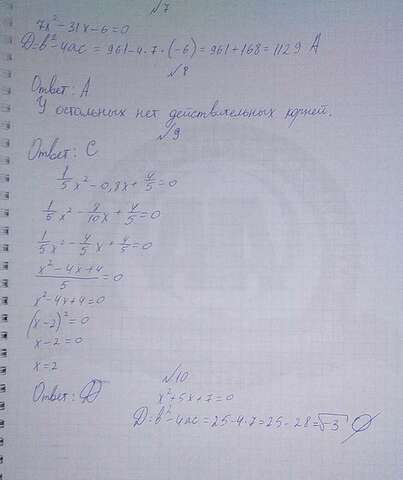 №7
7x² - 31x - 6 = 0
D = b² - 4ac = 961 - 4·7·(-6) = 961 + 168 = 1129 A
№8
Ответ: А
У остальных нет действительных корней.
№9
Ответ: С
1/5 x² - 0,8x + 4/5 = 0
1/5 x² - 8/10 x + 4/5 = 0
1/5 x² - 4/5 x + 4/5 = 0
(x² - 4x + 4)/5 = 0
x² - 4x + 4 = 0
(x - 2)² = 0
x - 2 = 0
x = 2
Ответ: D
№10
x² + 5x + 7 = 0
D = b² - 4ac = 25 - 4·7 = 25 - 28 = √-3 ∅